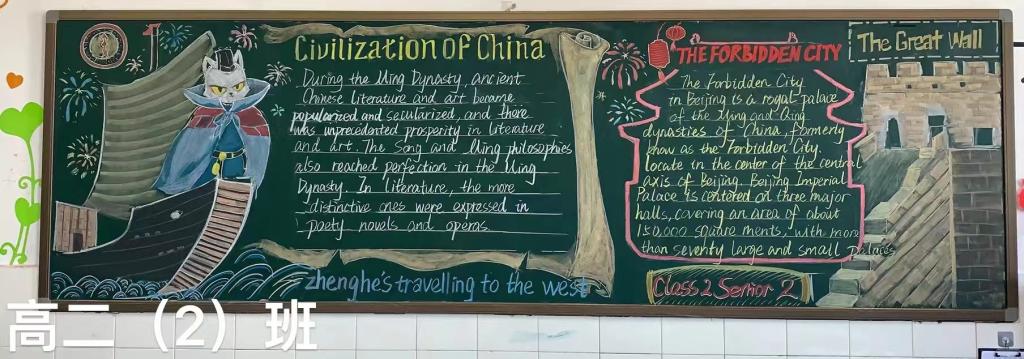 Civilization of China
During the Ming Dynasty, ancient
Chinese literature and art became
popularized and secularized, and there
was unprecedented prosperity in literature
and art. The Song and Ming philosophies
also reached perfection in the Ming
Dynasty. In literature, the more
distinctive ones were expressed in
poety novels and operas.
zhenghe's travelling to the west
THE FORBIDDEN CITY
The Forbidden City
in Beijing is a rogal palace
of the Ming and Qing
dynasties of China, formerly
know as the Forbidden City.
locate in the center of the central
axis of Beijing. Beijing Imperial
Palace is centered on three major
halls, covering an area of about
150,000 square ments, with more
than seventy large and small palaces
Class 2 Senior 2
The Great Wall
高二（2）班